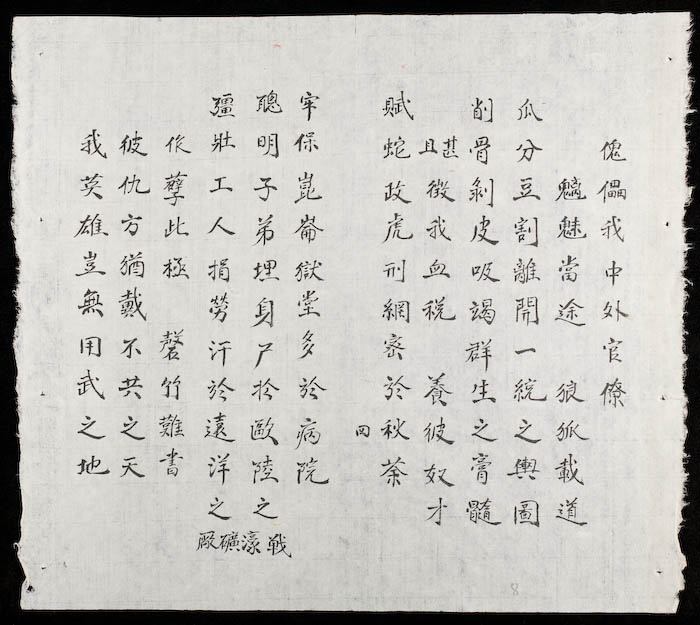 傀儡我中外官僚
魑魅當途 狼狐載道
瓜分豆割離開一統之輿圖
削骨剝皮吸竭群生之膏髓
且甚徵我血稅 養彼奴才
賦蛇政虎刑網密於秋荼
四
牢保崑崙獄堂多於病院
聰明子弟埋身尸於歐陸之戰濠
彊壯工人捐勞汗於遠洋之礦厰
作孽此極 罄竹難書
彼仇方猶戴不共之天
我英雄豈無用武之地
8